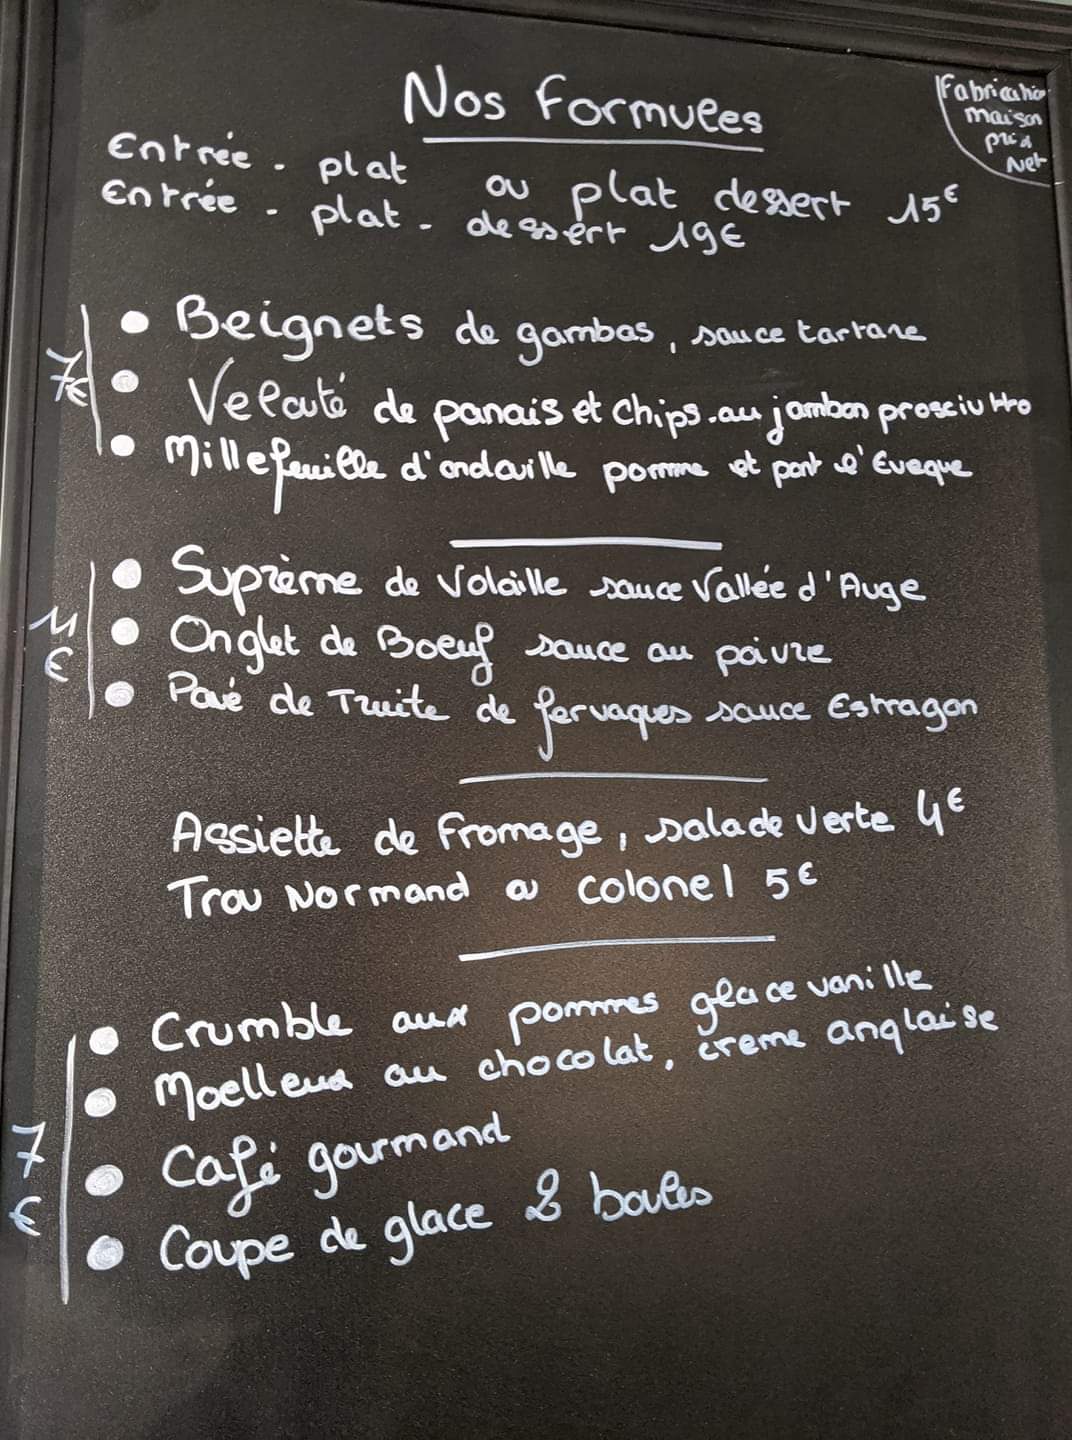 Nos Formules
Fabrication
maison
prix
Net
Entrée - plat ou plat dessert 15€
Entrée - plat - dessert 19€
7€
• Beignets de gambas, sauce tartare
• Velouté de panais et chips au jambon prosciutto
• Millefeuille d'andouille pomme et pont l'Eveque
11
€
• Suprème de Volaille sauce Vallée d'Auge
• Onglet de Boeuf sauce au poivre
• Pavé de Truite de fervaques sauce Estragon
Assiette de Fromage, salade verte 4€
Trou Normand ou Colonel 5€
7
€
• Crumble aux pommes glace vanille
• Moelleux au chocolat, creme anglaise
• Café gourmand
• Coupe de glace 2 boules